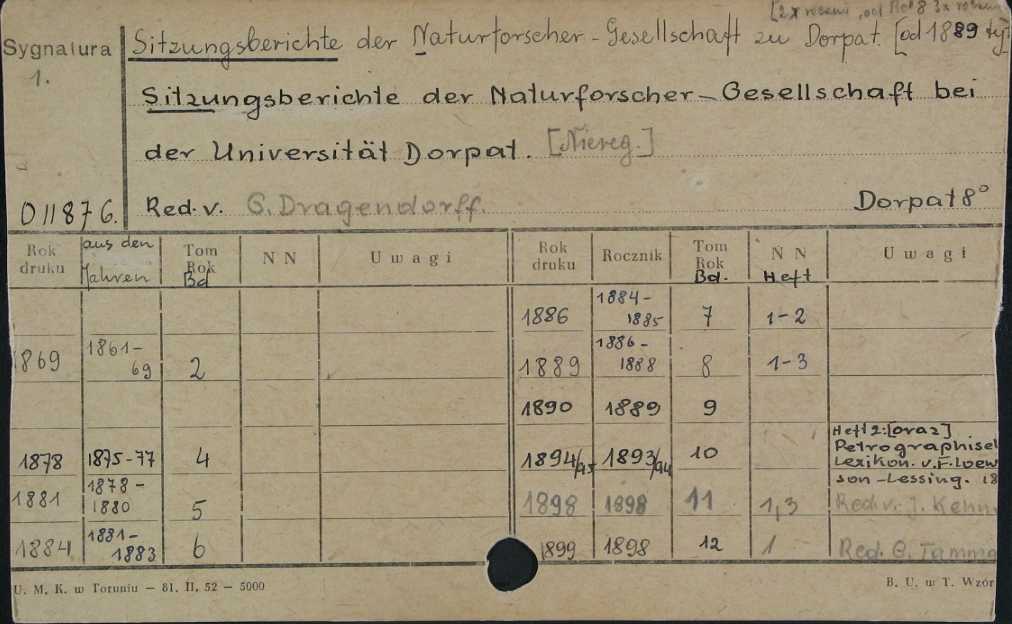 [2 x rocznie, od Bd 8 3x
Sygnatura
1.
Sitzungsberichte der Naturforscher-Gesellschaft zu Dorpat. [od 1889
Sitzungsberichte der Naturforscher-Gesellschaft bei
der Universität Dorpat. [Niereg.]
O11876. Red. v. G. Dragendorff. Dorpat 8°
Rok druku | aus den Jahren | Tom Rok Bd | N N | Uwagi | Rok druku | Rocznik | Tom Rok Bd. | N N Heft | Uwagi
1886 | 1884-1885 | 7 | 1-2
1869 | 1861-69 | 2 | 1889 | 1886-1888 | 8 | 1-3
1890 | 1889 | 9
1878 | 1875-77 | 4 | 1894/95 | 1893/94 | 10 | Heft 2: [oraz] Petrographisch Lexikon. v. F. Loewinson-Lessing. 18
1881 | 1878-1880 | 5 | 1898 | 1898 | 11 | 1,3 | Red. v. J. Kenn
1884 | 1881-1883 | 6 | 1899 | 1898 | 12 | 1 | Red. G. Tamma
U. M. K. w Toruniu — 81. II. 52 — 5000
B. U. w T. Wzór